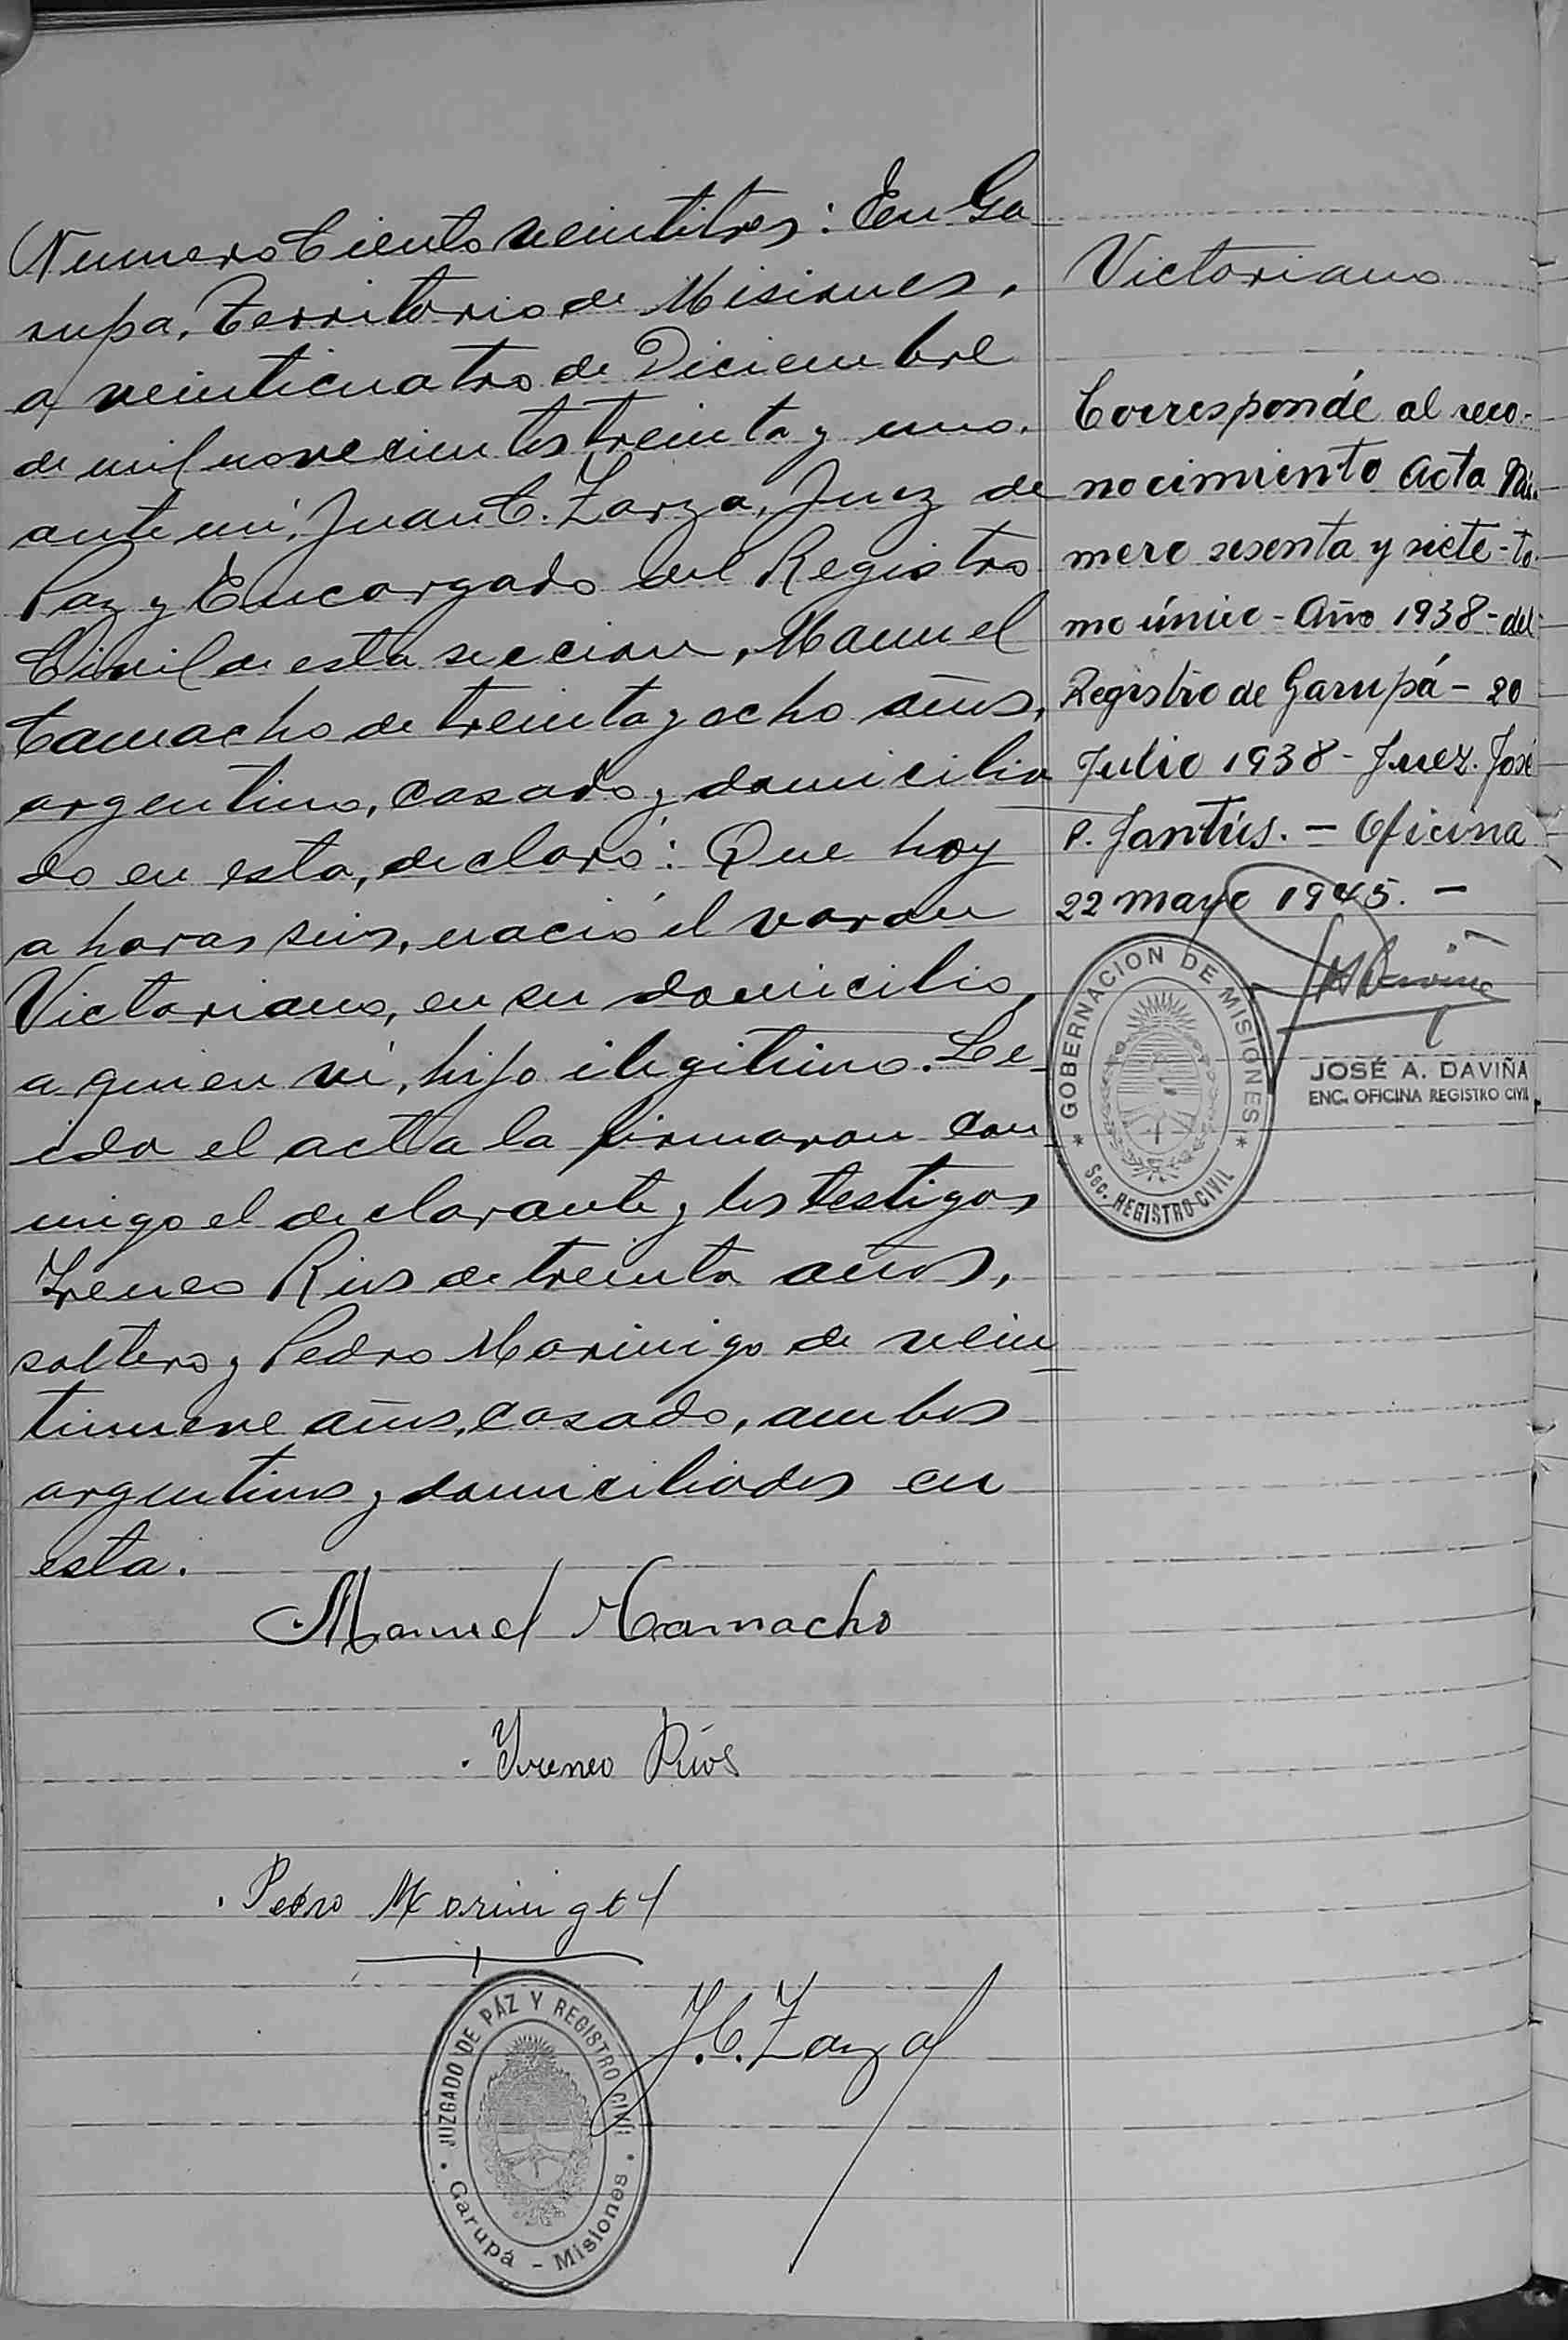 Numero Ciento veintitres: En Ga
rupa, Territorio de Misiones,
a veinticuatro de Diciembre
de mil novecientos treinta y uno.
ante mi, Juan C. Zarza, Juez de
Paz y Encargado del Registro
Civil de esta seccion, Manuel
Camacho de treinta y ocho años,
argentino, casado y domicilia
do en esta, declaró: Que hoy
a horas seis, nació el varon
Victoriano, en su domicilio,
a quien vi, hijo ilegitimo. Le-
ida el acta la firmaron con
migo el declarante y los testigos
Ireneo Rios de treinta años,
soltero y Pedro Marinigo de vein
tinueve años, casado, ambos
argentinos y domiciliados en
esta.
Manuel Camacho
Yreneo Ríos
Pedro Marinigo
J.C. Zarza
JUZGADO DE PAZ Y REGISTRO CIVIL
Garupá - Misiones
Victoriano
Correspondé al reco-
nocimiento Acta Nú-
mero sesenta y siete - to-
mo único - Año 1938 - del
Registro de Garupá - 20
Julio 1938 - Juez. José
P. Jantús. - Oficina
22 mayo 1945. -
GOBERNACION DE MISIONES
Sec. REGISTRO CIVIL
JOSÉ A. DAVIÑA
ENC. OFICINA REGISTRO CIVIL